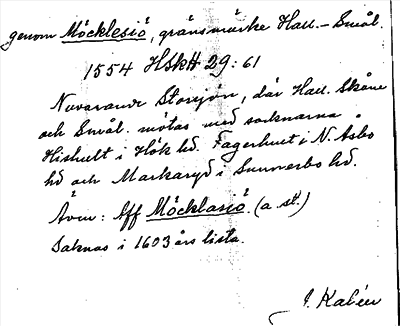 genom Möcklesiö, gränsmärke Hall.-Smål.
1554 HSkH 29:61
Nuvarande Storsjön, där Hall. Skåne
och Smål. mötas med socknarna
Hishult i Hök hd. Fagerhult i N. Åsbo
hd och Markaryd i Sunnerbo hd.
Även: Aff Möcklasiö. (a. st.)
Saknas i 1603 års lista.
J. Kalén